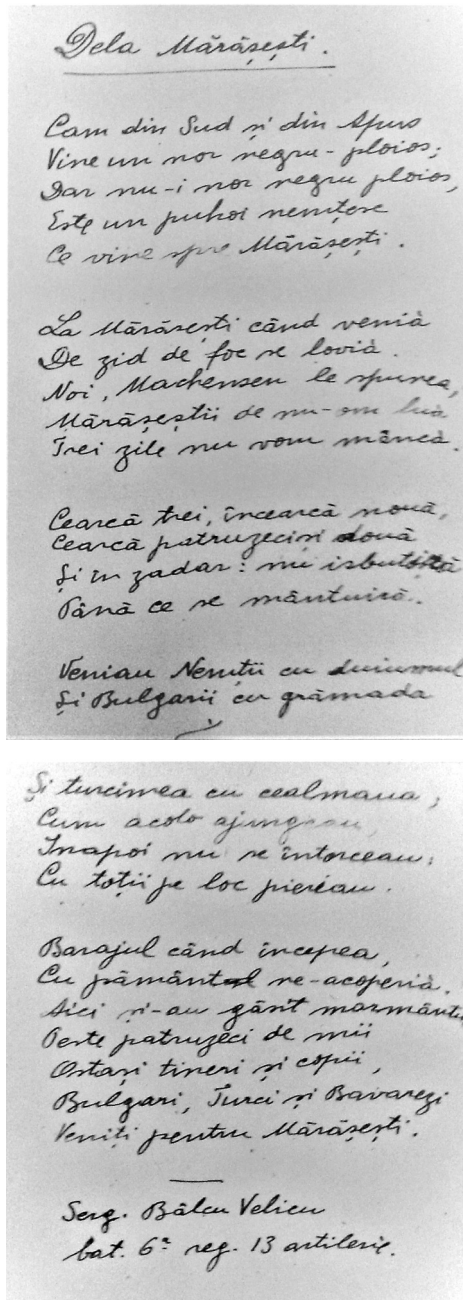 Dela Mărășești.
Cam din Sud și din Apus
Vine un nor negru-ploios;
Dar nu-i nor negru ploios,
Este un puhoi nemțesc
Ce vine spre Mărășești.
La Mărășești când venià
De zid de foc se lovià.
Noi, Mackensen le spunea,
Mărășeștii de nu-om luà
Trei zile nu vom mâncà.
Cearcă trei, încearcă nouă,
Cearcă patruzeciși două
Și în zadar: nu isbutită
Până ce se mântuiră.
Veniau Nemții cu duiumul
Și Bulgarii cu grămada
Și turcimea cu cealmaua;
Cum acolo ajungeau,
Înapoi nu se întorceau;
Cu toții pe loc piereau.
Barajul când începea,
Cu pământ ne-acoperià.
Aici și-au găsit mormântu
Peste patruzeci de mii
Ostași tineri și copii,
Bulgari, Turci și Bavarezi
Veniți pentru Mărășești.
Serg. Bâlcu Velicu
bat. 6ª reg. 13 artilerie.